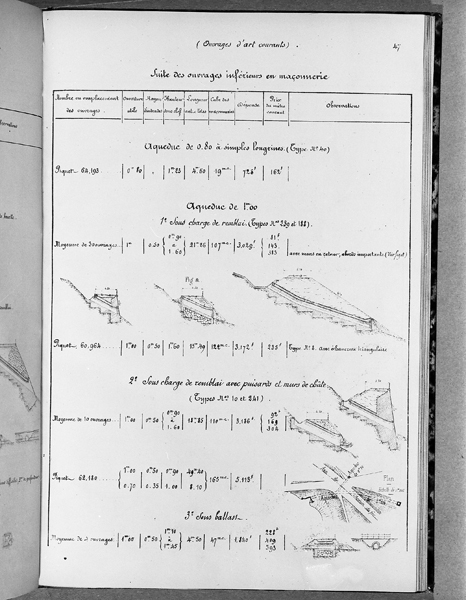 (Ouvrages d'art courants).
47
Suite des ouvrages inférieurs en maçonnerie
Nombre ou emplacement des ouvrages. Ouverture utile Hauteur sous clef Longueur Cube des maçonneries Dépense Prix du mètre courant Observations
Aqueduc de 0.80 à simples longrines. (Type Nº 40)
Piquet 64,193 0m80 1m25 4m60 19m.c. 726f 162f
Aqueduc de 1m00
1º Sous charge de remblai. (Types Nos 239 et 188).
Moyenne de ouvrages 1m 0.50 0m90 à 1.60 21m26 107m.c. 3,029f 81f 143 323 avec murs en retour, abords importants
Fig. 2.
Piquet 60,964 1m00 0m50 1m60 13m49 122m.c. 3,172f 235f Type Nº 2. avec ébrasure triangulaire
2º Sous charge de remblai avec puisards et murs de chûte
(Types Nos 10 et 241)
Moyenne de 10 ouvrages 1m00 0m50 0m90 à 1.60 18m85 110m.c. 3,186f 92f 169 304
Piquet 62,180 1m00 0.70 0m50 0.35 0m90 1.00 49m40 8.10 165m.c. 5,113f
Plan
3º Sous ballast
Moyenne de 3 ouvrages 1m00 0m50 à 1m45 4m50 47m.c. 1,840f 228f 409 593